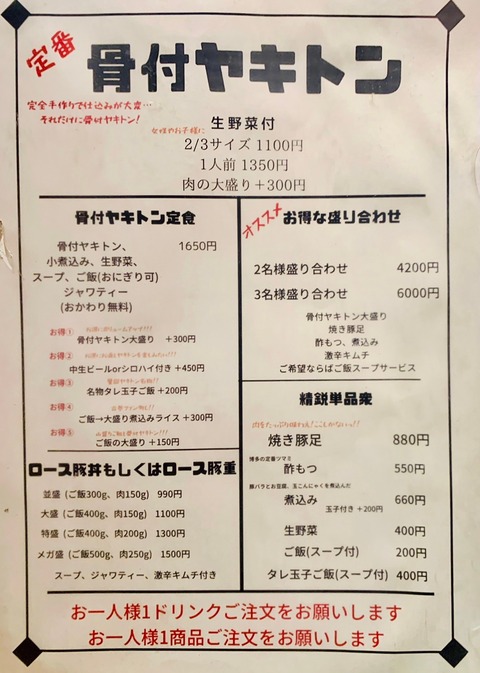 定番
骨付ヤキトン
完全手作りで仕込みが大変…
それだけに骨付ヤキトン!
生野菜付
女性やお子様に
2/3サイズ 1100円
1人前 1350円
肉の大盛り+300円
骨付ヤキトン定食
骨付ヤキトン、 1650円
小煮込み、生野菜、
スープ、ご飯(おにぎり可)
ジャワティー
(おかわり無料)
お得①
骨付ヤキトン大盛り +300円
お得②
中生ビールorシロハイ付き +450円
お得③
名物タレ玉子ご飯 +200円
お得④
ご飯→大盛り煮込みライス +300円
お得⑤
ご飯の大盛り +150円
ロース豚丼もしくはロース豚重
並盛 (ご飯300g、肉150g) 990円
大盛 (ご飯400g、肉150g) 1100円
特盛 (ご飯400g、肉200g) 1300円
メガ盛 (ご飯500g、肉250g) 1500円
スープ、ジャワティー、激辛キムチ付き
オススメ
お得な盛り合わせ
2名様盛り合わせ 4200円
3名様盛り合わせ 6000円
骨付ヤキトン大盛り
焼き豚足
酢もつ、煮込み
激辛キムチ
ご希望ならばご飯スープサービス
精鋭単品衆
焼き豚足 880円
博多の定番ツマミ
酢もつ 550円
豚バラとお豆腐、玉こんにゃくを煮込んだ
煮込み 660円
玉子付き +200円
生野菜 400円
ご飯(スープ付) 200円
タレ玉子ご飯(スープ付) 400円
お一人様1ドリンクご注文をお願いします
お一人様1商品ご注文をお願いします